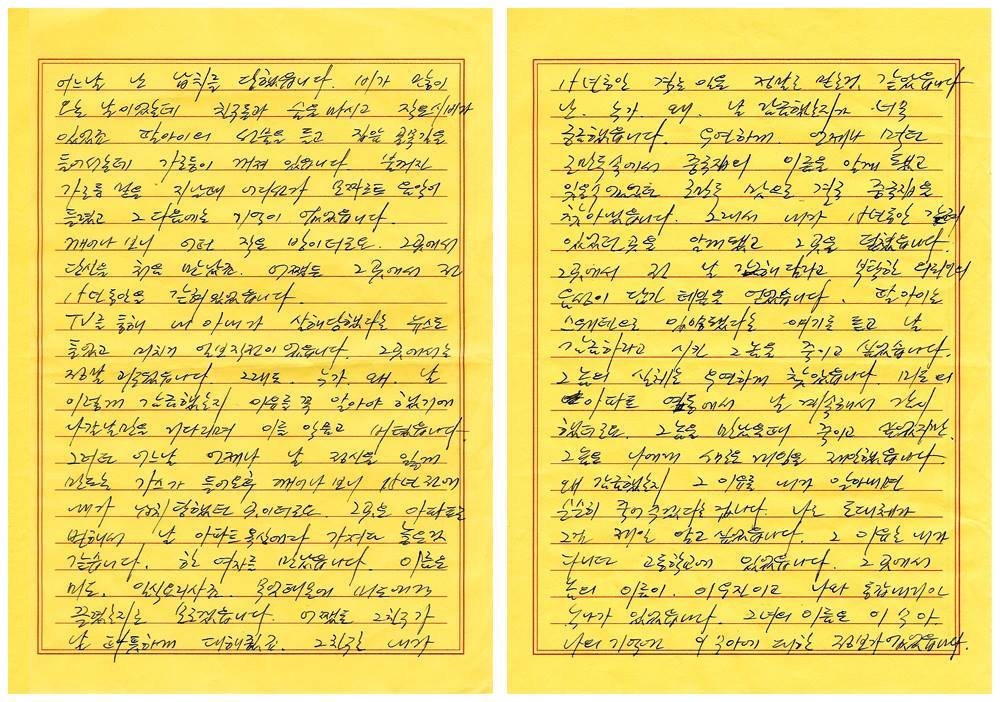 어느날 난 납치를 당했습니다. 비가 많이
오는 날이었는데 친구들과 술을 마시고 집으로
있었죠 딸아이의 선물을 들고 집앞 골목길을
들어서는데 가로등이 꺼져 있었습니다. 불꺼진
가로등 밑을 지날때 어디선가 음악이
들렸고 그 다음에는 기억이 없었습니다.
깨어나 보니 어떤 작은 방이더군요. 그곳에서
당신을 처음 만났죠. 어쨌든 그곳에서 전
11년동안을 갇혀있었습니다.
TV를 통해 내 아내가 살해당했다는 뉴스도
들었고 미치기 일보직전이었습니다. 그곳에서는
정말 미쳤었습니다. 그래도. 누가. 왜. 날
이렇게 감금했는지 이유를 꼭 알아야 했기에
나갈날만을 기다리며 이를 악물고 버텼습니다.
그러던 어느날 언제나 날 정신을 잃게
만드는 가스가 들어온후 깨어나 보니 11년전에
내가 납치당했던 곳이더군요. 그곳은 아파트로
변해서 날 아파트 옥상에다 가져다 놓은것
같습니다. 한 여자를 만났습니다. 이름은
미도. 일식요리사죠. 무엇때문에 미도에게
끌렸는지는 모르겠습니다. 어쨌든 그친구가
날 따뜻하게 대해줬죠. 그친구는 내가
11년동안 겪는 일을 정말로 믿는것 같았습니다
난. 누가. 왜. 날 감금했는지가 너무
궁금했습니다. 우연하게 언제나 먹던
군만두속에서 중국집의 이름을 알게 됐고
잊을수 없었던 군만두 맛으로 결국 중국집을
찾아냈습니다. 그래서 내가 11년동안 갇혀
있었던곳을 알게됐고 그곳을 털었습니다.
그곳에서 전 날 감금해달라고 부탁한 의뢰인의
음성이 담긴 테잎을 얻었습니다. 딸아이는
스웨덴으로 입양됐다는 얘기를 듣고 날
감금하라고 시킨 그놈을 죽이고 싶었습니다.
그놈의 실체는 우연하게 찾았습니다. 미도의
아파트 옆동에서 날 계속해서 감시
했더군요. 그놈을 만났을때 죽이고 싶었지만.
그놈은 나에게 새로운 게임을 제안했습니다.
왜 감금했는지 그 이유를 내가 알아내면
순순히 죽어주겠다는 겁니다. 나는 도대체가
그게 제일 알고 싶었습니다. 그 이유는 내가
다니던 고등학교에 있었습니다. 그곳에서
놈의 이름이. 이우진이고 나와 동갑내기인
누나가 있었습니다. 그녀의 이름은 이수아.
나의 기억엔 이수아에 대한 정보가 없었습니다.